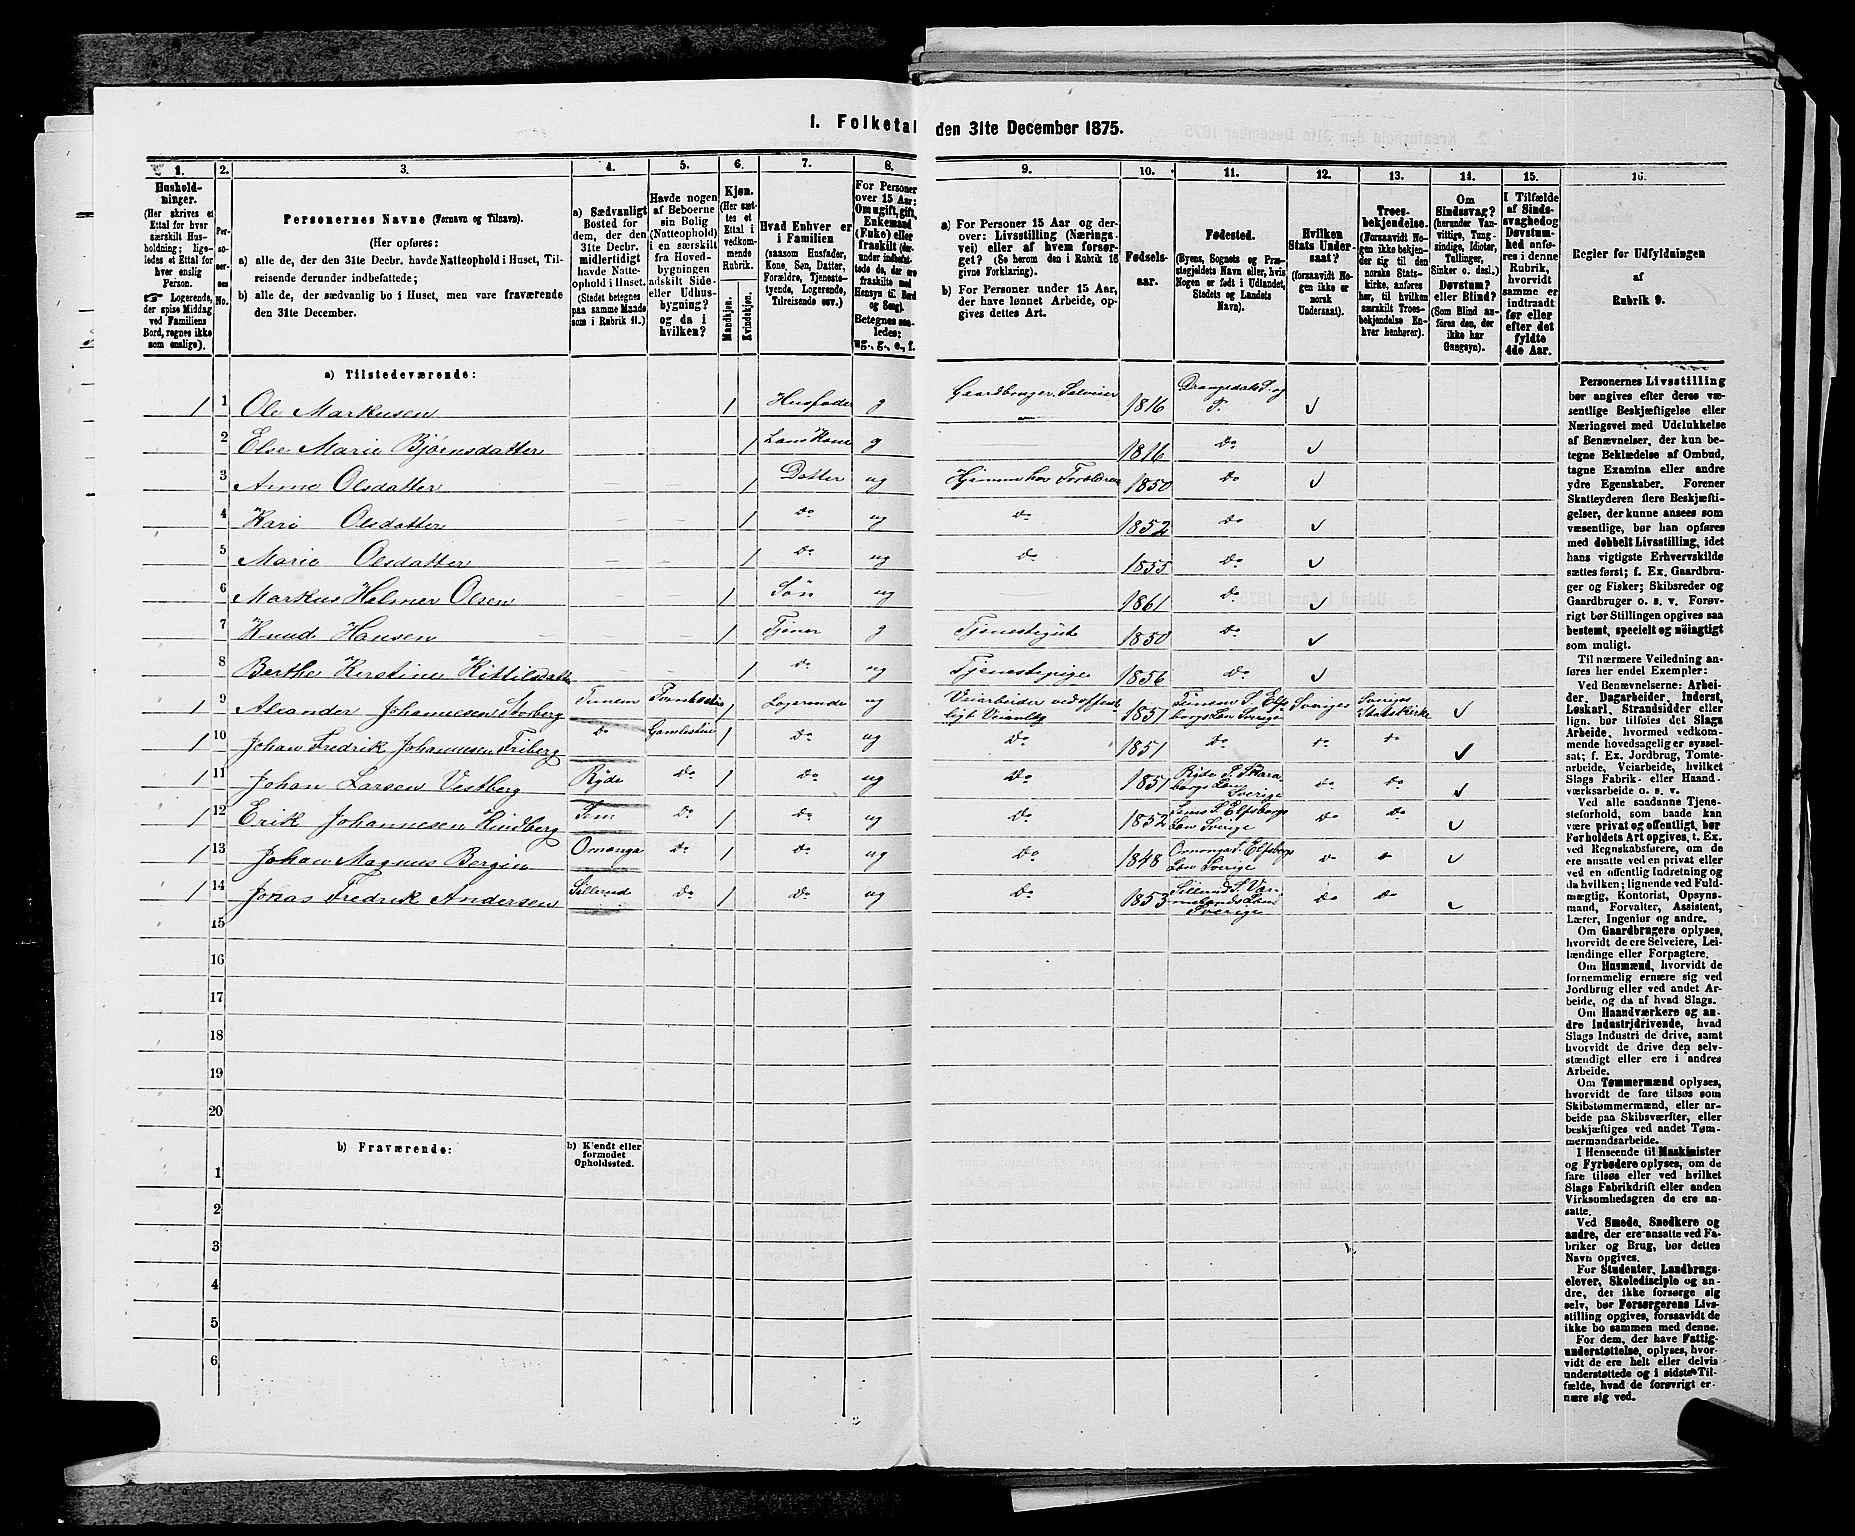 1. Folketal den 31te December 1875.
1. 2. 3. 4. 5. 6. 7. 8. 9. 10. 11. 12. 13. 14. 15. 16.
Hushold-
ninger.
(Her skrives et
Ettal for hver
særskilt Hus-
holdning; lige-
ledes et Ettal for
hver enslig
Person.
☞ Logerende,
der spise Middag
ved Familiens
Bord, regnes ikke
som enslige).
Per-
so-
ner-
nes
No.
Personernes Navne (Fornavn og Tilnavn).
(Her opføres:
a) alle de, der den 31te Decbr. havde Natteophold i Huset, Til-
reisende derunder indbefattede;
b) alle de, der sædvanlig bo i Huset, men vare fraværende
den 31te December.
a) Sædvanligt
Bosted for
dem, der den
31te Decbr.
midlertidigt
havde Natte-
ophold i Huset.
(Stedet betegnes
paa samme Maade
som i Rubrik 11.)
Havde nogen
af Beboerne
sin Bolig
(Natteophold)
i en særskilt
fra Hoved-
bygningen
adskilt Side-
eller Udhus-
bygning?
og da i
hvilken?
Kjøn.
(Her sæt-
tes et
Ettal i
vedkom-
mende
Rubrik.
Mandkjøn.
Kvindekjøn.
Hvad Enhver er
i Familien
(saasom Husfader,
Kone, Søn, Datter,
Forældre, Tjeneste-
tyende, Logerende,
Tilreisende osv.)
For Personer
over 15 Aar:
Om ugift, gift,
Enkemand
(Enke) eller
fraskilt (der-
under indbefat-
tede de, der ere
fraskilte med
Hensyn til Bord
og Seng).
Betegnes saa-
ledes:
ug., g., e., f.
a) For Personer 15 Aar og der-
over: Livsstilling (Næringa-
vei) eller af hvem forsør-
get? (Se herom den i Rubrik 16
givne Forklaring).
b) For Personer under 15 Aar,
der have lønnet Arbeide, op-
gives dettes Art.
Fødsels-
aar.
Fødested.
(Byens, Sognets og Præ-
stegjeldets Navn eller, hvis
Nogen er født i Udlandet,
Stedets og Landets
Navn).
Hvilken
Stats Under-
saat?
(forsaavidt No-
gen ikke er
norsk
Undersaat).
Troes-
bekjendelse.
(Forsaavidt No-
gen ikke bekjen-
der sig til den
norske Stats-
kirke, anføres
her, til hvilken
særskilt Troes-
bekjendelse En-
hver henhører).
Om
Sindssvag?
(herunder Van-
vittige, Tung-
sindige, Idioter,
Tullinger,
Sinker o. desl.)
Døvstum?
eller Blind?
(Som Blind an-
føres den, der
ikke har
Gangsyn).
I Tilfælde
af Sinds-
svaghed og
Døvstum-
hed anfø-
res i denne
Rubrik,
hvorvidt
samme er
indtraadt
før eller
efter det
fyldte
4de Aar.
Regler for Udfyldningen
af
Rubrik 9.
a) Tilstedeværende:
1 1 Ole Markusen 1 Husfader g Gaardbruger, Selveier 1816 Drangedals S. og P. ✓
2 Else Marie Bjørnsdatter 1 Hans Kone g 1816 Do ✓
3 Anne Olsdatter 1 Datter ug Hjemme hos Forældrene 1850 Do ✓
4 Kari Olsdatter 1 Do ug Do 1852 Do ✓
5 Marie Olsdatter 1 Do ug Do 1855 Do ✓
6 Markus Helmer Olsen 1 Søn ug 1861 Do ✓
7 Knud Hansen 1 Tjener g Tjenestegut 1850 Do ✓
8 Berthe Kirstine Kittilsdatter 1 Do ug Tjenestepige 1856 Do ✓
1 9 Alexander Johannesen Storberg 1 Logerende ug Veiarbeider ved offent-
ligt Veianlæg 1851 S. Elfs-
borgs Län Sverige Sveriges Sveriges
Statskirke ✓
1 10 Johan Fredrik Johannesen Friberg Do Gamlestue 1 Do ug Do 1851 Do Do Do ✓
1 11 Johan Larsen Vestberg Ryde Do 1 Do ug Do 1851 Ryde S. Skara-
borgs Län
Sverige Do Do ✓
1 12 Erik Johannesen Rindberg Do 1 Do ug Do 1852 S. Elfsborgs
Län Sverige Do Do ✓
1 13 Johan Magnus Bergin Ornunga Do 1 Do ug Do 1848 Ornunga S. Elfsborgs
Län Sverige Do Do ✓
1 14 Jonas Fredrik Andersen Sillerud Do 1 Do ug Do 1853 Sillerud S. Ver-
melands Län
Sverige Do Do ✓
15
16
17
18
19
20
b) Fraværende:
b) Kjendt eller
formodet
Opholdssted.
1
2
3
4
5
6
Personernes Livsstilling
bør angives efter deres væ-
sentlige Beskjæftigelse eller
Næringsvei med Udelukkelse
af Benævnelser, der kun be-
tegne Beklædelse af Ombud,
tagne Examina eller andre
ydre Egenskaber. Forener
Skatteyderen flere Beskjæfti-
gelser, der kunne ansees som
væsentlige, bør han opføres
med dobbelt Livsstilling, idet
hans vigtigste Erhvervskilde
sættes først; f. Ex. Gaardbru-
ger og Fisker; Skibsreder og
Gaardbruger o. s. v. Forøv-
rigt bør Stillingen opgives saa
bestemt, specielt og nøiagtigt
som muligt.
Til nærmere Veiledning an-
føres her endel Exempler:
Ved Benævnelserne: Arbei-
der, Dagarbeider, Inderst,
Løskarl, Strandsidder eller
lign. bør tilføies det Slags
Arbeide, hvormed vedkom-
mende hovedsagelig er syssel-
sat; f. Ex. Jordbrug, Tomte-
arbeide, Veiarbeide, hvilket
Slags Fabrik- eller Haand-
værksarbeide o. s. v.
Ved alle saadanne Tjene-
steforhold, som baade kan
være privat og offentligt, bør
Forholdets Art opgives, t. Ex.
ved Regnskabsførere, om de
ere ansatte ved en privat eller
ved en offentlig Indretning og
da hvilken; lignende ved Fuld-
mægtig, Kontorist, Opsyns-
mand, Forvalter, Assistent,
Lærer, Ingeniør og andre.
Om Gaardbrugere oplyses,
hvorvidt de ere Selveiere, Lei-
lændinge eller Forpagtere.
Om Husmænd, hvorvidt de
fornemmelig ernære sig ved
Jordbrug eller ved andet Ar-
beide, og da af hvad Slags.
Om Haandværkere og an-
dre Industridrivende, hvad
Slags Industri de drive, samt
hvorvidt de drive den selv-
stændigt eller ere i andres
Arbeide.
Om Tømmermænd oplyses,
hvorvidt de fare tilsøs som
Skibstømmermænd, eller ar-
beide paa Skibsværfter, eller
beskjæftiges ved andet Tøm-
mermandsarbeide.
I Henseende til Maskinister
og Fyrbødere oplyses, om de
fare tilsøs eller ved hvilket
Slags Fabrikdrift eller anden
Virksomhedsgren de ere an-
satte.
Ved Smede, Snedkere og
andre, der ere ansatte ved Fa-
briker og Brug, bør dettes
Navn opgives.
For Studenter, Landbrugs-
elever, Skoledisciple og an-
dre, der ikke forsørge sig
selv, bør Forsørgerens Livs-
stilling opgives, forsaavidt de
ikke bo sammen med denne.
For dem, der have Fattig-
understøttelse, oplyses, hvor-
vidt de ere helt eller delvis
understøttede og i sidste Til-
fælde, hvad de forøvrigt er-
nære sig ved.